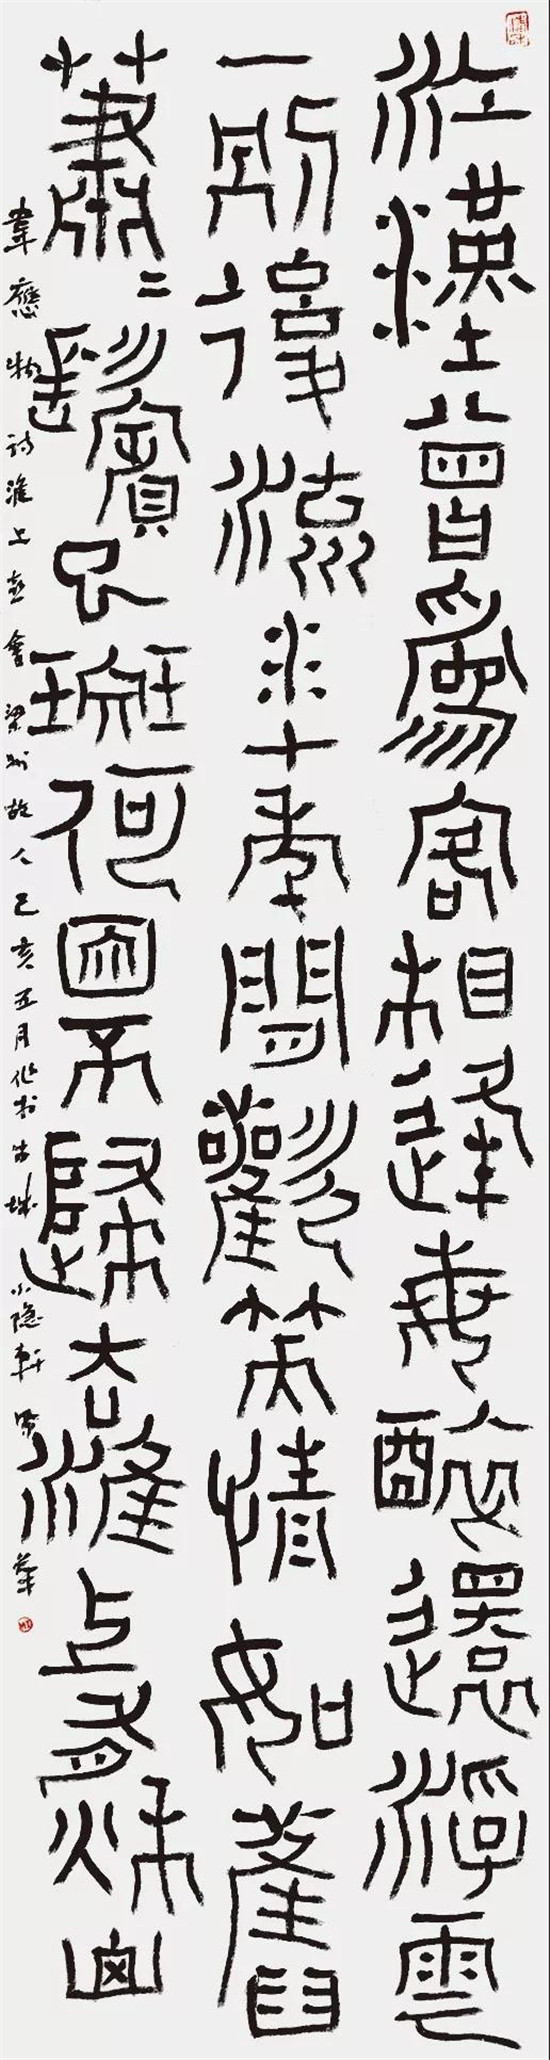 江漢曾為客相逢每醉還浮雲
一別後流水十年間歡笑情如舊
蕭〻鬢已斑何因不歸去淮上有秋山
韋應物詩淮上喜會梁州故人己亥五月作於古城小隱軒